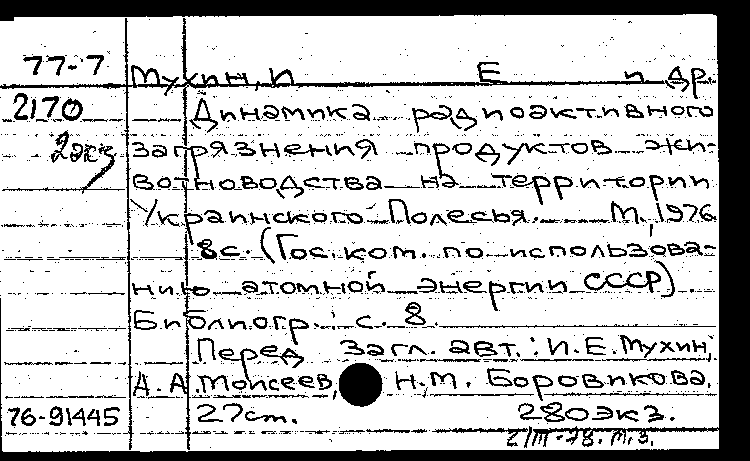 77-7 Мухин, И Е и др.
2170 Динамика радиоактивного
2экз загрязнения продуктов жи-
вотноводства на территории
Украинского Полесья. М., 1976
8с. (Гос. ком. по использова-
нию атомной энергии СССР).
Библиогр.: с. 8.
Перед загл. авт.: И.Е. Мухин,
А.А Моисеев, Н.М. Боровикова.
76-91445 27см. 280экз.
2/III-78. т.з.